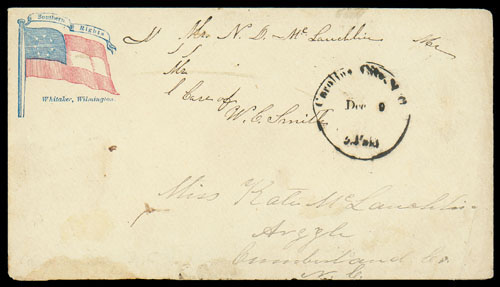 Southern Rights
Whitaker, Wilmington
Mrs N. D. McLauchlin
Mr
Care of
W. C. Smith
Carolina City, N. C.
Dec 9
5 Paid
Miss Kate McLauchlin
Argyle
Cumberland Co
N. C.